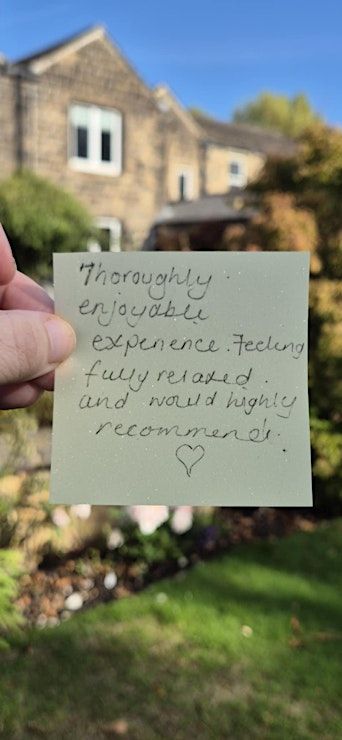 Thoroughly
enjoyable
experience. Feeling
fully relaxed.
and would highly
recommend.
♡